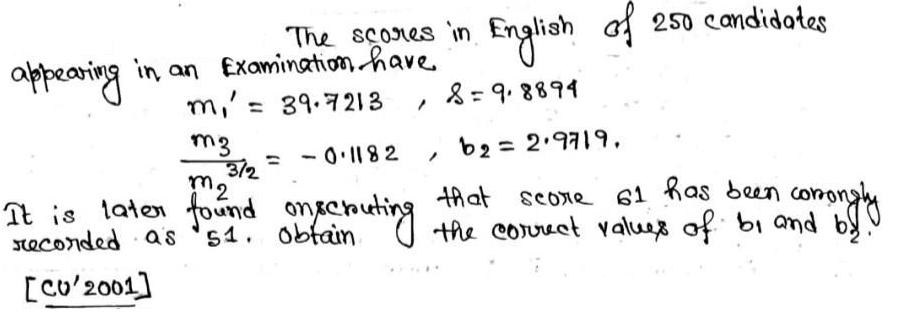 The scores in English of 250 candidates
appearing in an Examination have
m₁' = 39.7213 , s = 9.8894
m₃/m₂^3/2 = - 0.1182 , b₂ = 2.9719.
It is later found onscruting that score 61 has been worongly
recorded as 51. Obtain the correct values of b₁ and b₂.
[CU'2001]